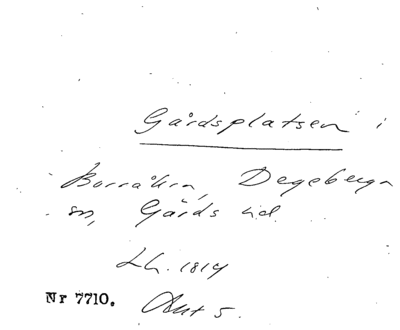 Gårdsplatsen i
Borråkra, Degeberga
sn, Gärds hd
Lh. 1819
Nr 7710. Ant 5.